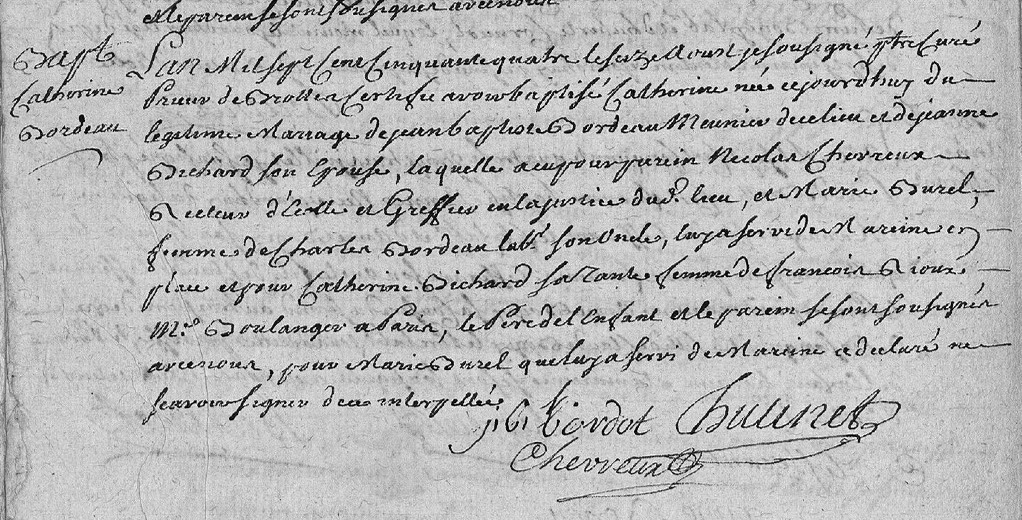 et le parein se sont sousignes avec nous
Bapt.
Catherine
Bordeau
L'an Mil sept Cent Cinquante quatre le seize Aoust je sousigné ptre Curé
Prieur de Certifie avoir baptisé Catherine née cejourd'huy du
legitime Mariage de jean baptiste Bordeau Meunier de ce lieu et de jeanne
Bichard son Epouse, laquelle a eu pour parein Nicolas Chevreux
Recteur d'Ecolle et Greffier en la justice dud. lieu, et Marie Burel,
femme de Charles Bordeau labr. son Oncle, luy a servi de Mareine en
place et pour Catherine Bichard sa Tante femme de francois Rioux
Mre Boulanger a Paris, le Pere de l'Enfant et le parein se sont sousignés
avec nous, pour Marie Burel que luy a servi de Mareine a declaré ne
scavoir signer de ce interpellée
j b bordot
Chevreux